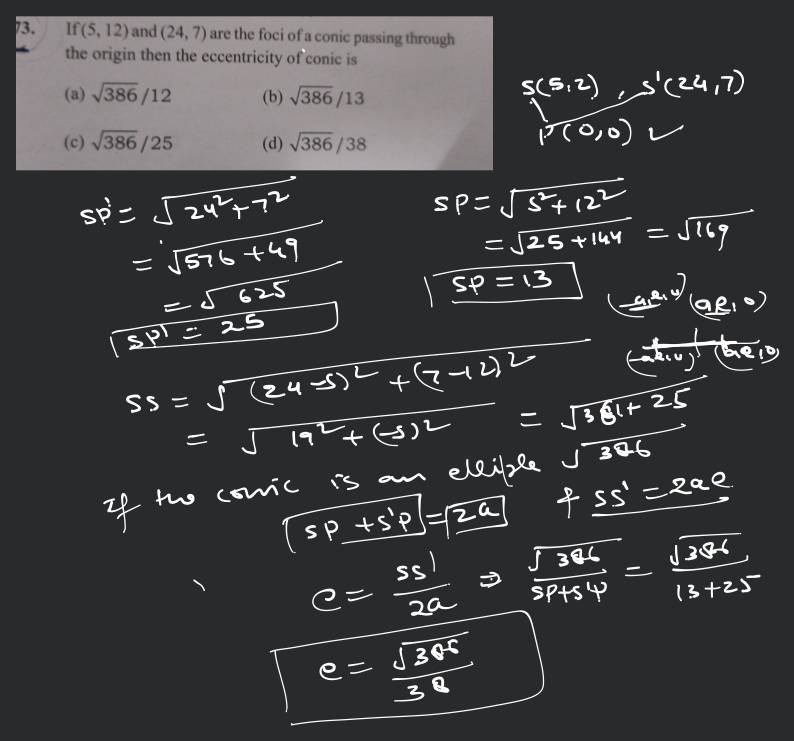 73. If (5, 12) and (24, 7) are the foci of a conic passing through
the origin then the eccentricity of conic is
(a) √386/12 (b) √386/13
(c) √386/25 (d) √386/38
S(5,2) , S'(24,7)
P(0,0)
SP' = √24²+7²
= √576+49
= √625
SP' = 25
SP = √5²+12²
= √25+144 = √169
SP = 13
(ae,0)
SS = √(24-5)²+(7-12)²
= √19²+(-5)² = √361+25
√386
If the conic is an ellipse
SP + S'P = 2a & SS' = 2ae
e = SS'/2a ⇒ √386/SP+S'P = √386/13+25
e = √386/38